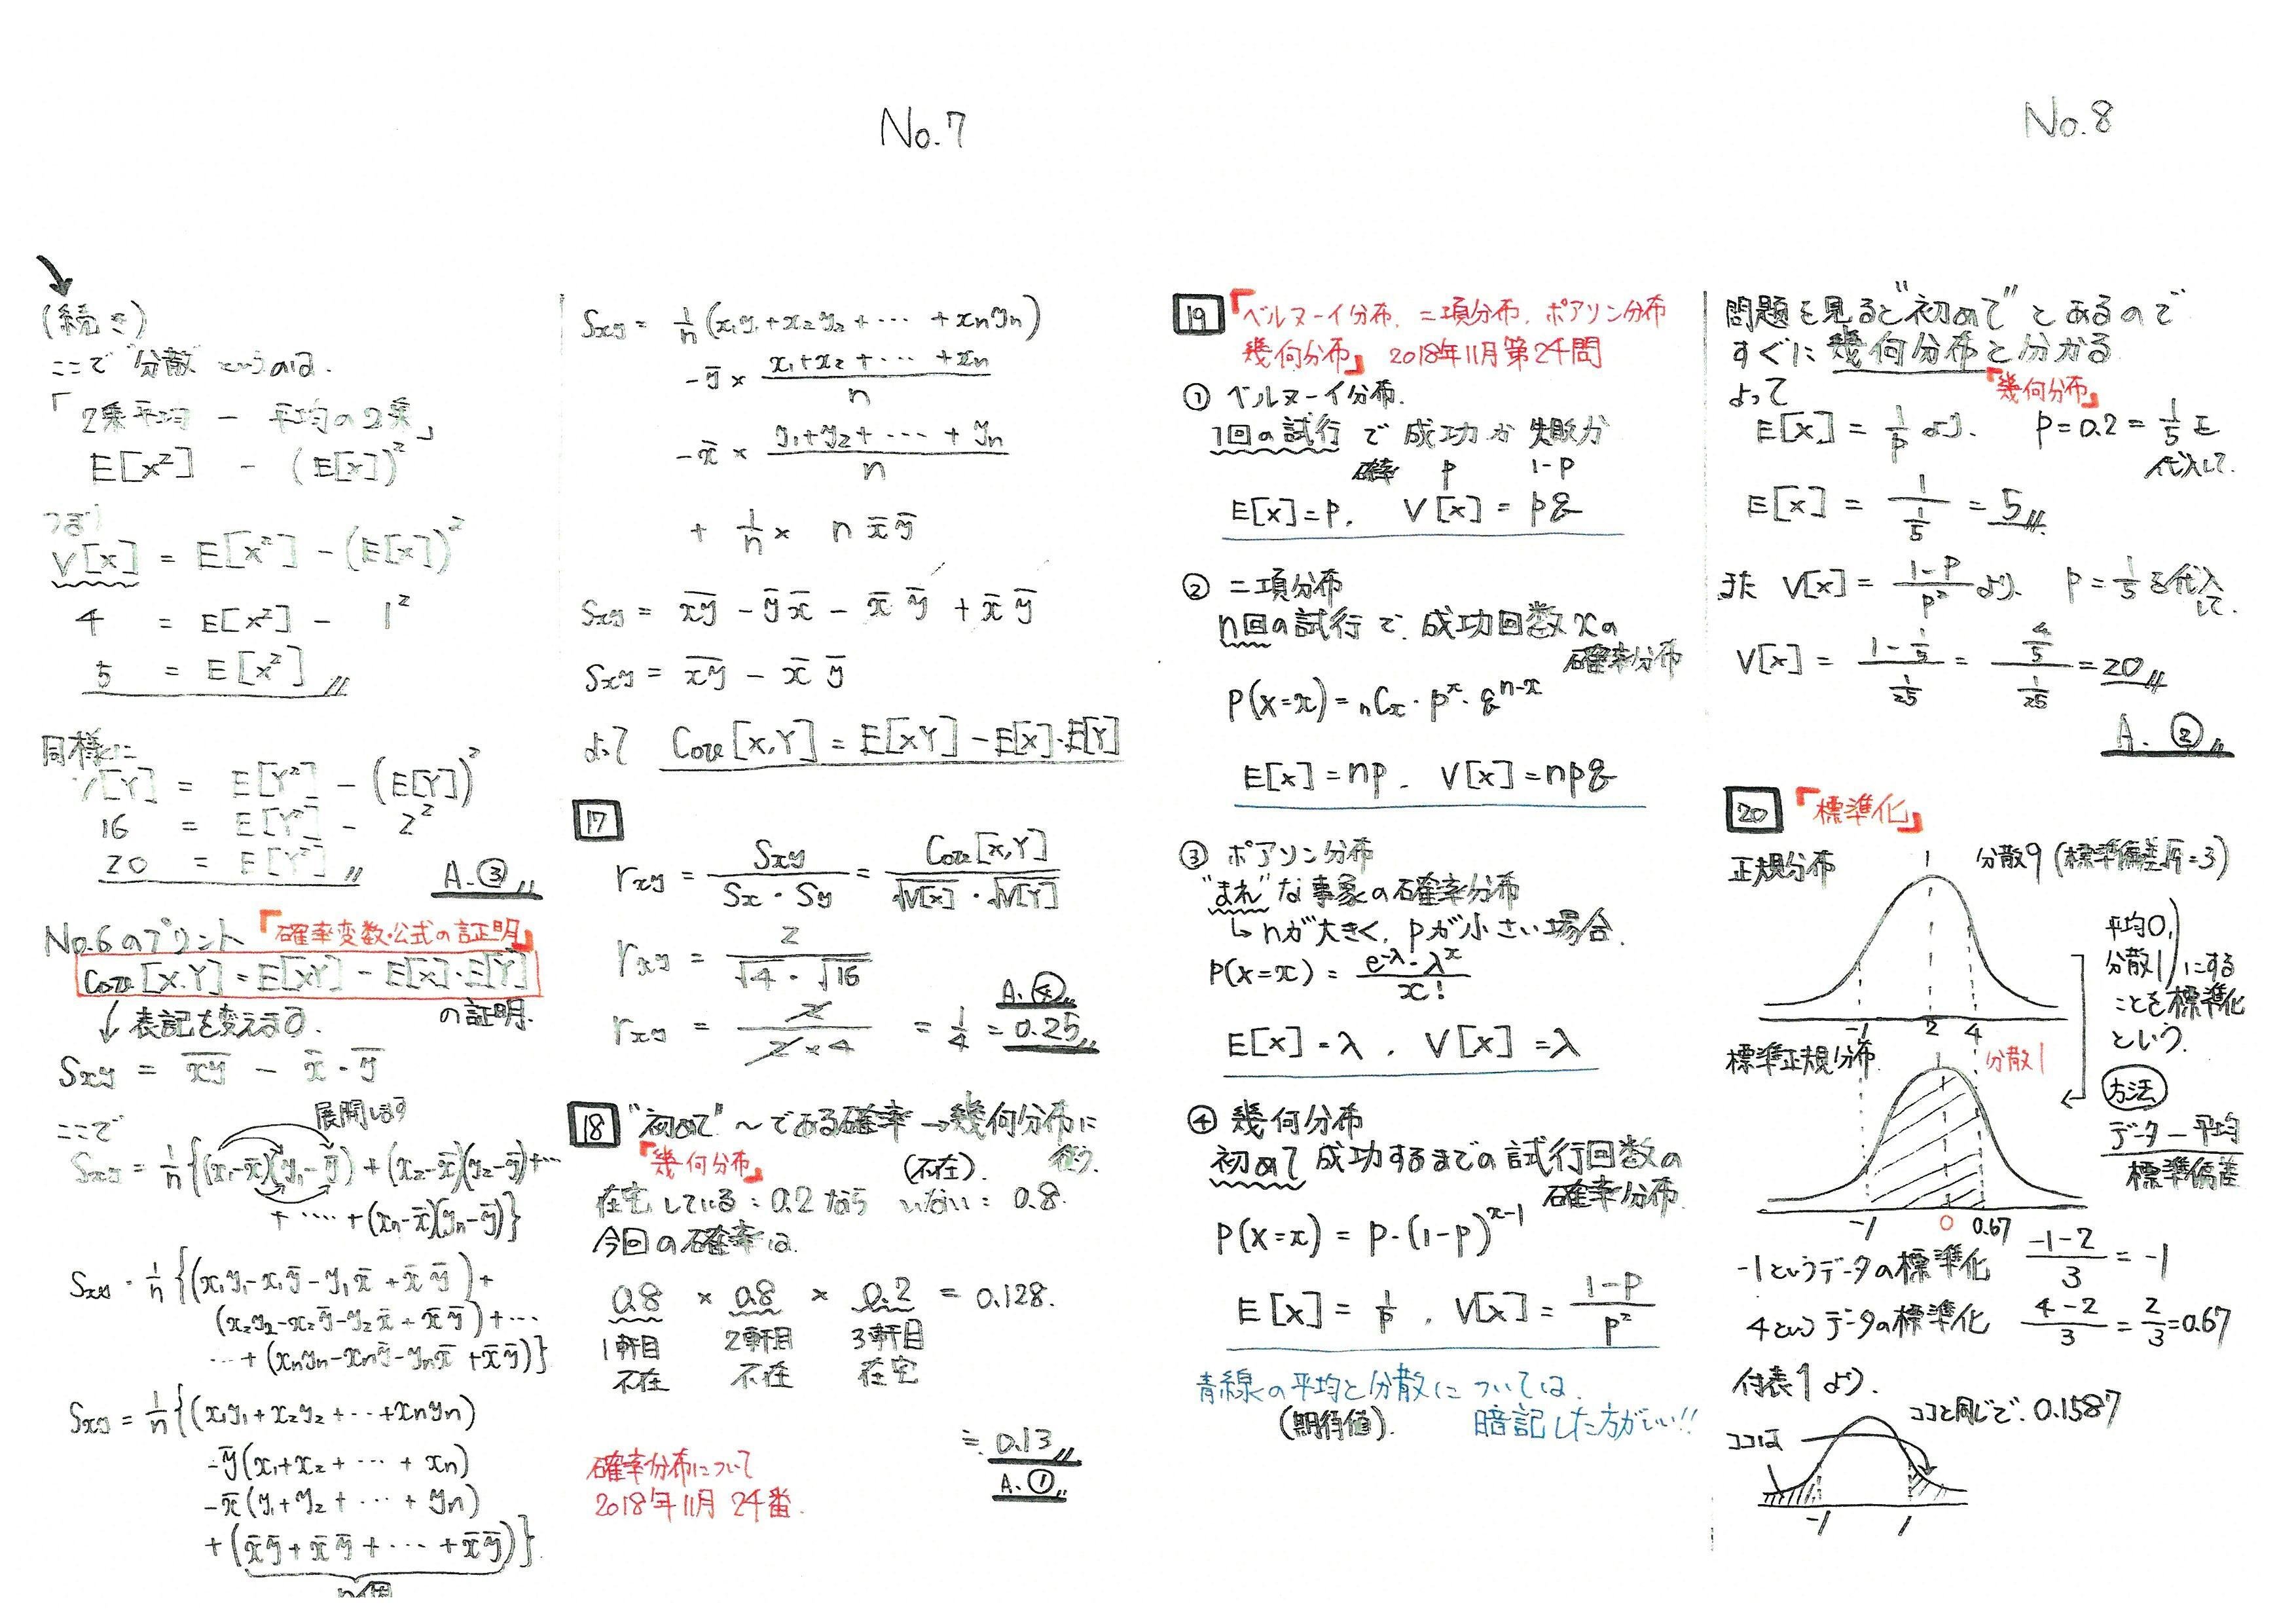 No.7
(続き)
ここで"分散"というのは.
「2乗平均 − 平均の2乗」
E[X²] − (E[X])²
つまり
V[X] = E[X²] − (E[X])²
4 = E[X²] − 1²
5 = E[X²]
同様に
V[Y] = E[Y²] − (E[Y])²
16 = E[Y²] − 2²
20 = E[Y²]
A. ③
No.6のプリント 「確率変数・公式の証明」
Cov[X,Y] = E[XY] − E[X]・E[Y]
の証明.
↓ 表記を変えます.
Sxy = x̄ȳ − x̄・ȳ
ここで
展開します
Sxy = 1/n {(x₁−x̄)(y₁−ȳ) + (x₂−x̄)(y₂−ȳ)+…
+ ‥‥ + (xn−x̄)(yn−ȳ)}
Sxy = 1/n {(x₁y₁−x₁ȳ−y₁x̄+x̄ȳ)+
(x₂y₂−x₂ȳ−y₂x̄+x̄ȳ)+…
…+(xnyn−xnȳ−ynx̄+x̄ȳ)}
Sxy = 1/n {(x₁y₁+x₂y₂+…+xnyn)
−ȳ(x₁+x₂+…+xn)
−x̄(y₁+y₂+…+yn)
+(x̄ȳ+x̄ȳ+…+x̄ȳ)}
n個
Sxy = 1/n (x₁y₁+x₂y₂+…+xnyn)
−ȳ × (x₁+x₂+…+xn)/n
−x̄ × (y₁+y₂+…+yn)/n
+ 1/n × n x̄ȳ
Sxy = x̄ȳ − ȳx̄ − x̄ȳ + x̄ȳ
Sxy = x̄ȳ − x̄ȳ
よって Cov[X,Y] = E[XY] − E[X]・E[Y]
17
rxy = Sxy/(Sx・Sy) = Cov[X,Y]/(√V[X]・√V[Y])
rxy = 2/(√4・√16)
A. ④
rxy = 2/(2×4) = 1/4 = 0.25
18 "初めて"～である確率→幾何分布に
従う.
「幾何分布」
(不在).
在宅している:0.2なら いない:0.8.
今回の確率は
0.8 × 0.8 × 0.2 = 0.128.
1軒目 2軒目 3軒目
不在 不在 在宅
≒ 0.13
A. ①
確率分布について
2018年11月 24番.
No.8
19 「ベルヌーイ分布, 二項分布, ポアソン分布
幾何分布」 2018年11月第24問
① ベルヌーイ分布.
1回の試行で成功か失敗か
確率 p 1−p
E[X]=p, V[X]=pq
② 二項分布
n回の試行で, 成功回数xの
確率分布
P(X=x) = nCx・p^x・q^(n−x)
E[X]=np, V[X]=npq
③ ポアソン分布
"まれ"な事象の確率分布
↳ nが大きく, pが小さい場合.
P(X=x) = (e^−λ・λ^x)/x!
E[X]=λ, V[X]=λ
④ 幾何分布
初めて成功するまでの試行回数の
確率分布
P(X=x) = p・(1−p)^(x−1)
E[X] = 1/p, V[X] = (1−p)/p²
青線の平均と分散については,
(期待値).
暗記した方がいい!!
問題を見ると"初めて"とあるので
すぐに幾何分布と分かる
「幾何分布」
よって
E[X] = 1/p より, p=0.2=1/5を
代入して.
E[X] = 1/(1/5) = 5
また V[X] = (1−p)/p² より, p=1/5を代入
して.
V[X] = (1−1/5)/(1/25) = (4/5)/(1/25) = 20
A. ②
20 「標準化」
正規分布
分散9 (標準偏差√9=3)
−1 2 4
平均0,
分散1 にする
ことを標準化
という.
標準正規分布.
分散1
方法
(データ−平均)/標準偏差
−1 0 0.67
−1というデータの標準化 (−1−2)/3 = −1
4というデータの標準化 (4−2)/3 = 2/3 = 0.67
付表1より.
ココと同じで, 0.1587
ココは
−1 1